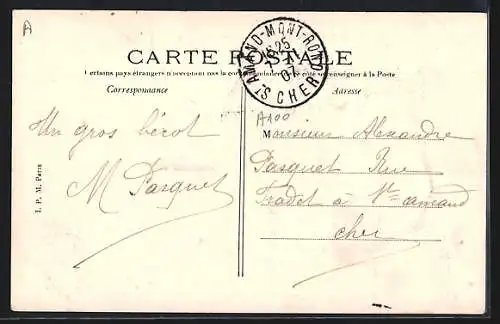 A
CARTE POSTALE
Certains pays étrangers n'acceptant pas la correspondance de ce côté se renseigner à la Poste
Correspondance
Adresse
ST AMAND-MONT-ROND
CHER
07
A100
Un gros bécot
M Pasquet
Monsieur Alexandre
Pasquet Rue
Fradet à St amand
cher
I. P. M. Paris